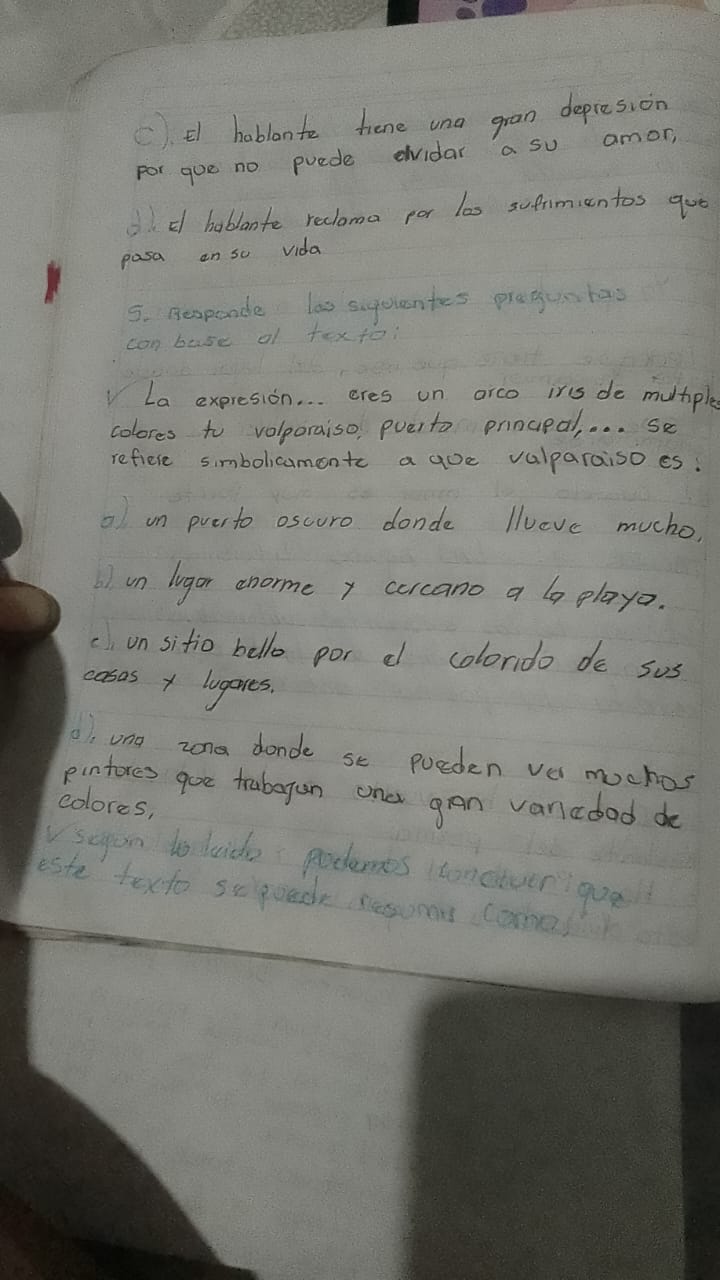 c). El hablante tiene una gran depresión
por que no puede olvidar a su amor,
d). El hablante reclama por los sufrimientos que
pasa en su vida
5. Responde las siguientes preguntas
con base al texto:
√ La expresión... eres un arco iris de multiples
colores tu valparaiso, puerto principal,... se
refiere simbolicamente a que valparaiso es:
a) un puerto oscuro donde llueve mucho,
b) un lugar enorme y cercano a la playa.
c), un sitio bello por el colorido de sus
casas y lugares.
d), una zona donde se pueden ver muchos
pintores que trabajan una gran variedad de
colores,
√ segun lo leido podemos concluir que
este texto se puede resumir como